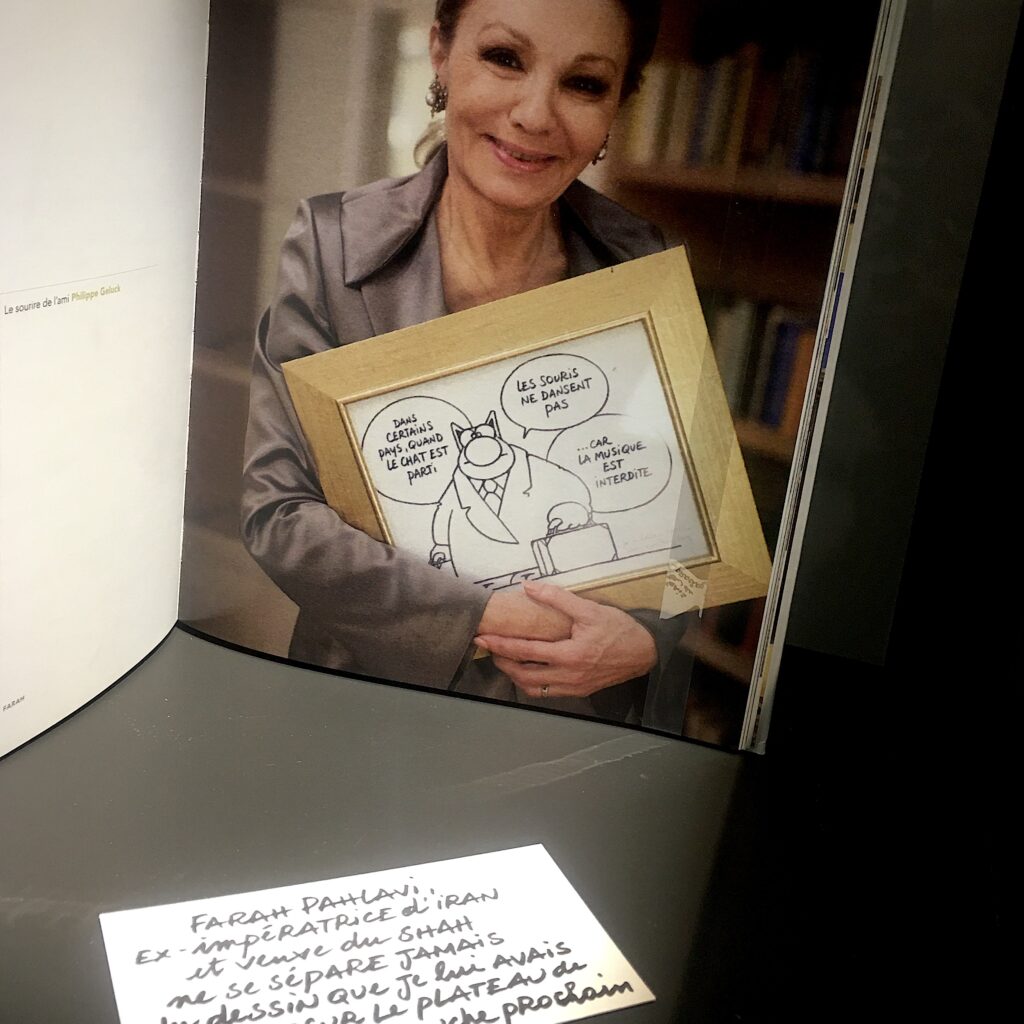 Le sourire de l'ami Philippe Geluck
FARAH
DANS
CERTAINS
PAYS, QUAND
LE CHAT EST
PARTI
LES SOURIS
NE DANSENT
PAS
...CAR
LA MUSIQUE
EST
INTERDITE
FARAH PAHLAVI,
EX-IMPÉRATRICE d'IRAN
et veuve du SHAH
ne se SÉPARE JAMAIS
du dessin que je lui AVAIS
SUR LE PLATEAU de
prochain